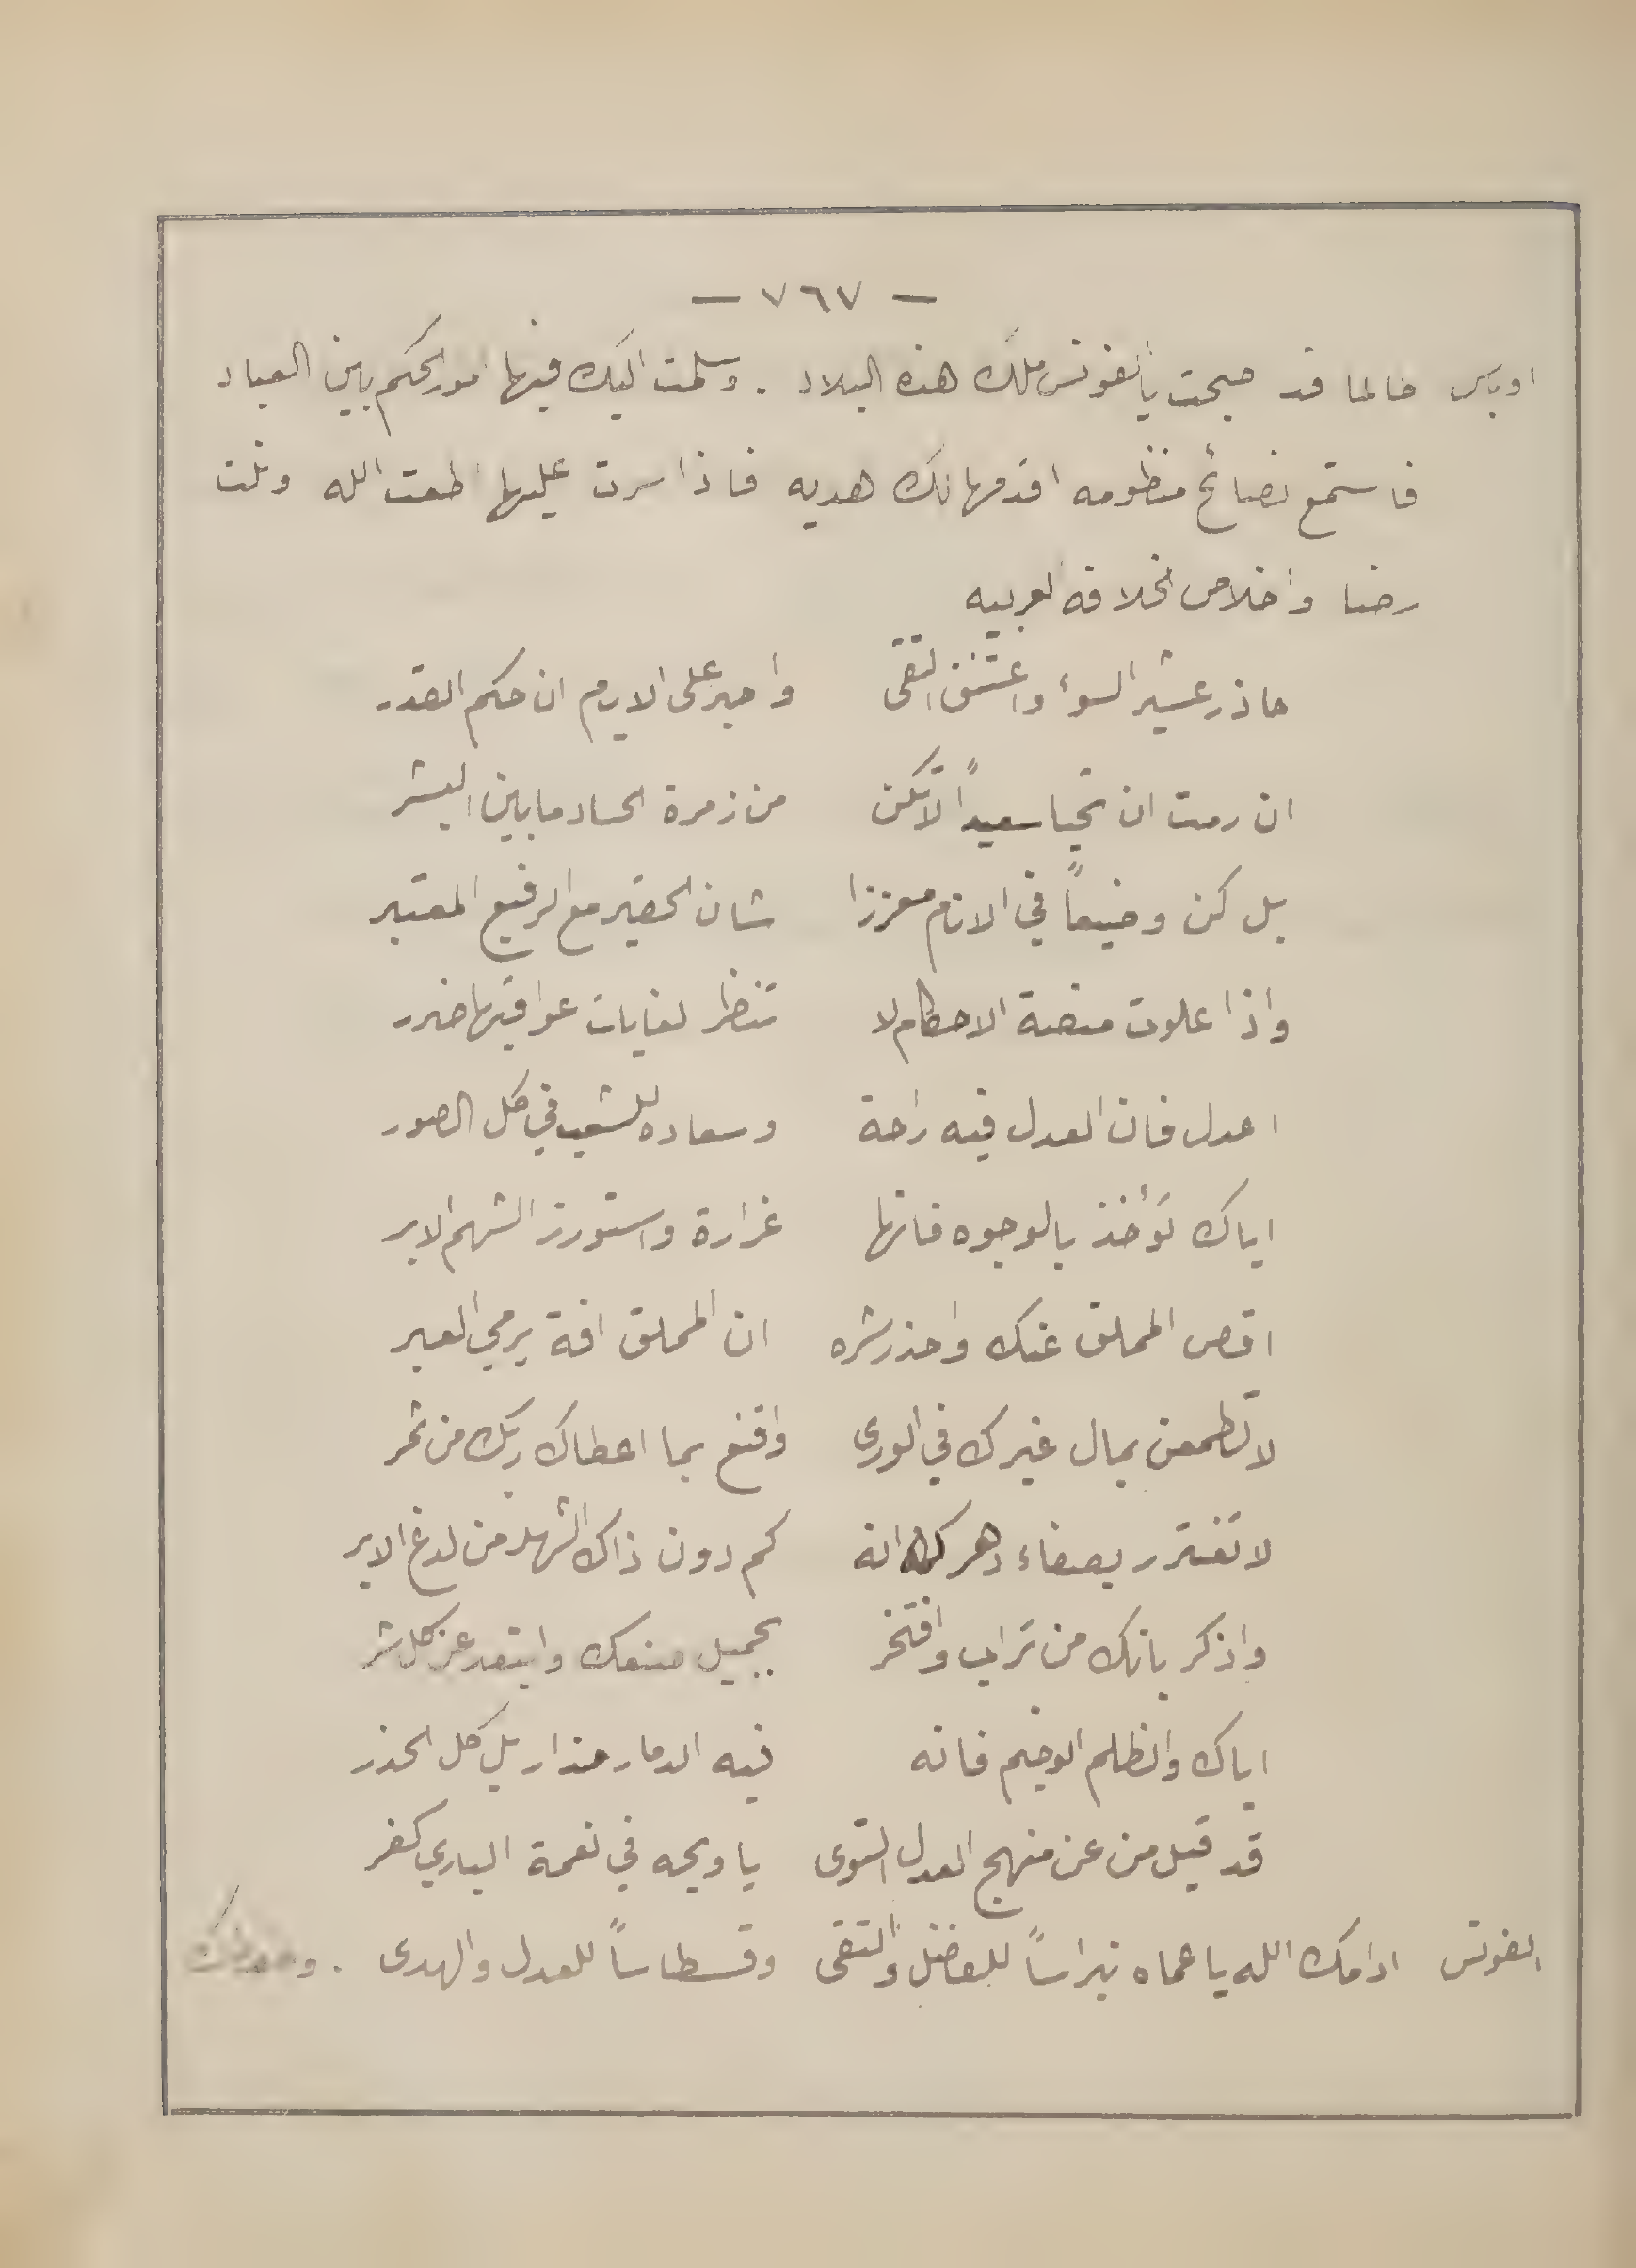 — ٧٦٧ —
اوبس طالما قد صبحت يا ألفونس ملك هذه البلاد . وسلمت اليك فيها امور الحكم بين العباد
فاستمع نصائح منظومه اقدمها لك هديه فاذا سرت عليها اطعت الله ونلت
رضا واخلاص اخلاقه لعربيه
حاذر عشير السوء واعتنق التقى واصبر على الايام ان حكم القدر
ان رمت ان تحيا سعيداً لا تكن من زمرة الحساد ما بين البشر
بل كن وضيعاً في الانام معززا شان الحقير مع الرفيع المعتبر
واذا علوت منصة الاحكام لا تنظر لغايات عواقبها ضرر
اعدل فان العدل فيه راحة وسعاده للشعب في كل الصور
اياك تؤخذ بالوجوه فانها غرارة واستوزر الشهم الابر
اقص المملق عنك واحذر شره ان المملق افة يرمي العبر
لا تطمعن بمال غيرك في الورى واقنع بما اعطاك ربك من ثمر
لا تغترر بصفاء دهرك انه كم دون ذاك الشهد من لدغ الابر
واذكر بانك من تراب وافتخر بجميل صنعك وابتعد عن كل شر
اياك والظلم الوخيم فانه فيه الدمار حذار بل كل الحذر
قد قيل من عن منهج العدل التوى يا ويحه في نعمة الباري كفر
الفونس ادامك الله يا عماه نبراساً للفضل والتقى وقسطاساً للعدل والهدى .